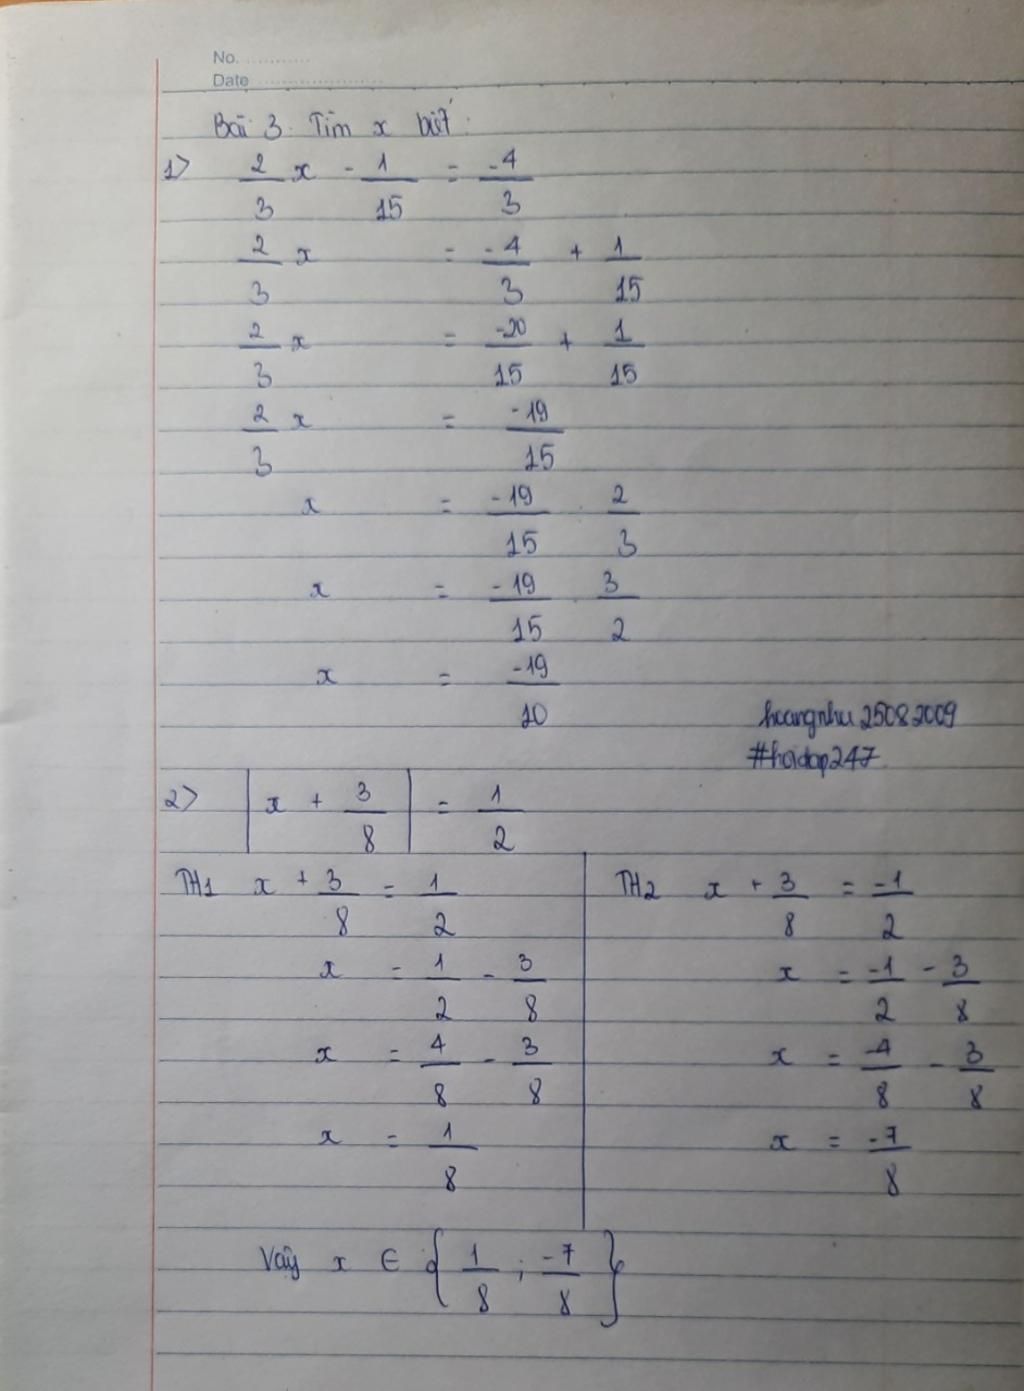 No. ............
Date ........................
Bài 3. Tìm x biết:
1> 2/3 x - 1/15 = -4/3
2/3 x = -4/3 + 1/15
2/3 x = -20/15 + 1/15
2/3 x = -19/15
x = -19/15 . 2/3
x = -19/15 . 3/2
x = -19/10
hoangnhu25082009
#hoidap247
2> |x + 3/8| = 1/2
TH1 x + 3/8 = 1/2
x = 1/2 - 3/8
x = 4/8 - 3/8
x = 1/8
TH2 x + 3/8 = -1/2
x = -1/2 - 3/8
x = -4/8 - 3/8
x = -7/8
Vậy x ∈ {1/8 ; -7/8}